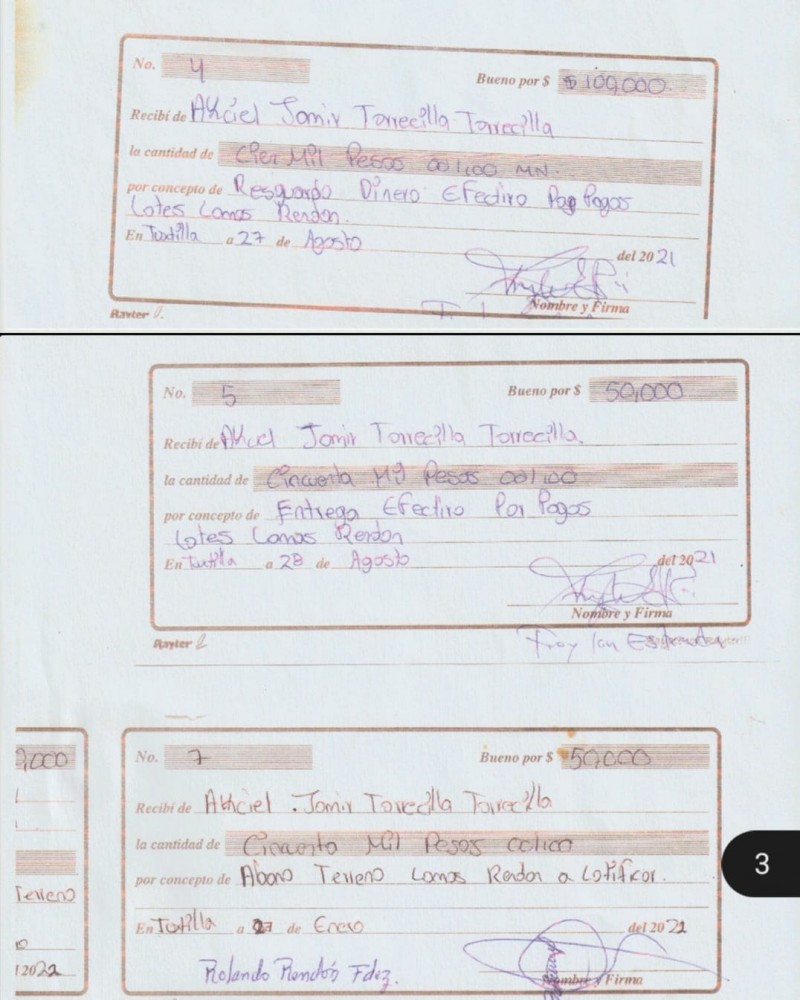 No. 4 Bueno por $ $100,000.
Recibí de Akciel Jomir Torrecilla Torrecilla
la cantidad de Cien Mil Pesos 00/100 MN.
por concepto de Resguardo Dinero Efectivo Pagos
Lotes Lomas Rendon.
En Tuxtilla a 27 de Agosto del 2021
Nombre y Firma
Rayter
No. 5 Bueno por $ 50,000
Recibí de Akciel Jomir Torrecilla Torrecilla.
la cantidad de Cincuenta Mil Pesos 00/100
por concepto de Entrega Efectivo Por Pagos
Lotes Lomas Rendon
En Tuxtilla a 28 de Agosto del 2021
Nombre y Firma
Rayter
Troy Ian
9,000
Terreno
2022
No. 7 Bueno por $ 50,000
Recibí de Akciel Jomir Torrecilla Torrecilla
la cantidad de Cincuenta Mil Pesos 00/100
por concepto de Abono Terreno Lomas Rendon a Lotificar.
En Tuxtilla a 27 de Enero del 2022
Rolando Rendón Fdez.
Nombre y Firma
3